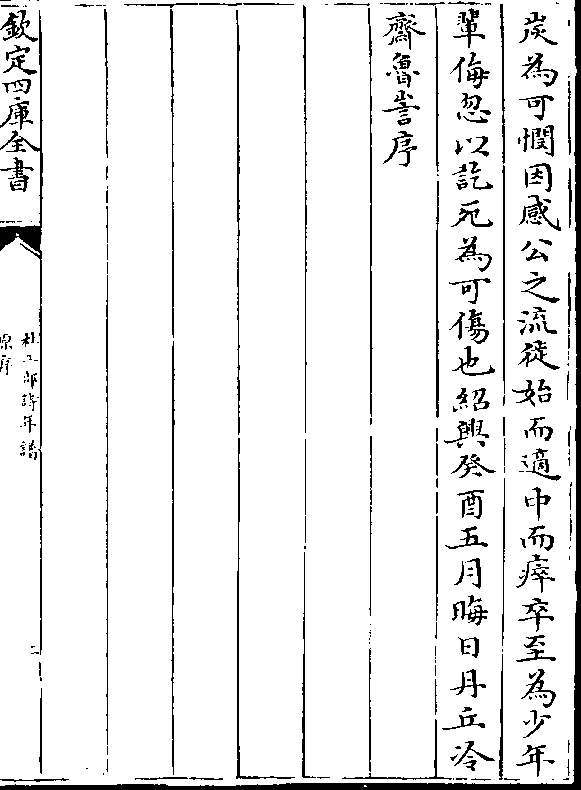 炭為可憫因感公之流徙始而適中而瘁卒至為少年
輩侮忽以訖死為可傷也紹興癸酉五月晦日丹丘冷
齋魯訔序
欽定四庫全書
杜工部詩年譜
原序